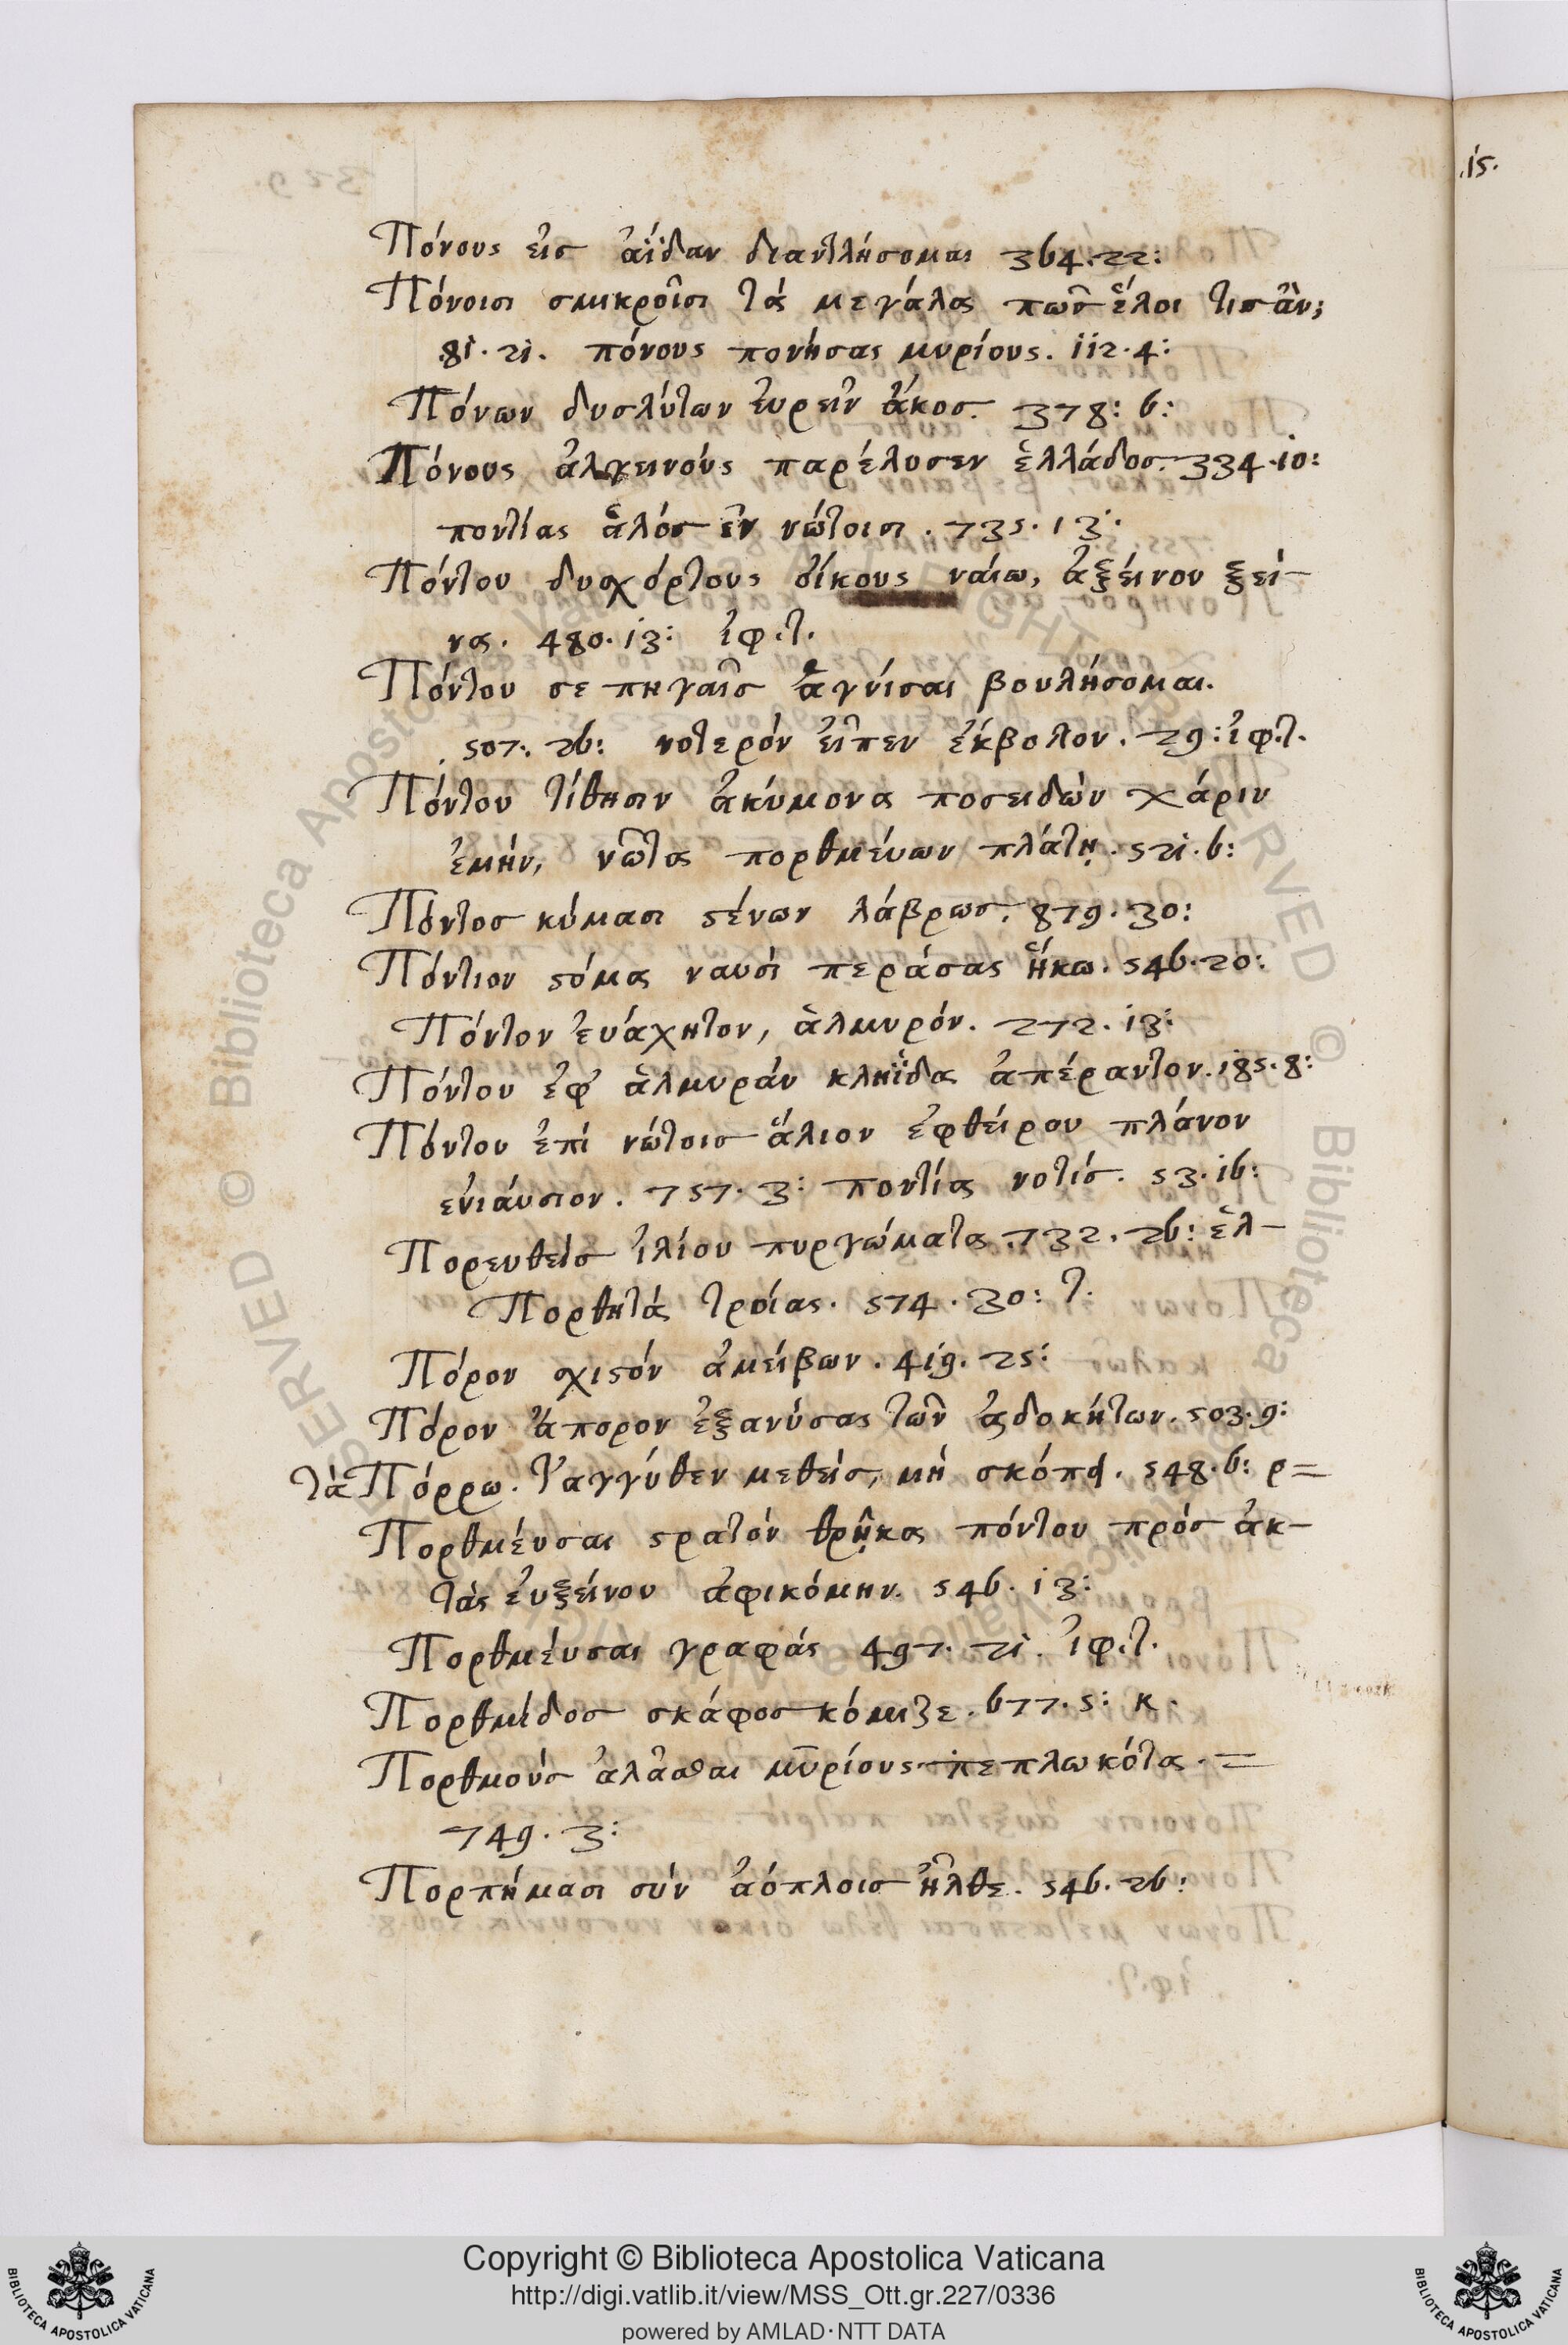 Πόνους εἰσ ἀΐδαν διαντλήσομαι 364.22:
Πόνοισι σμικροῖσι τὰ μεγάλα πωσ ἕλοι τισ ἄν;
81.21. πόνους πονήσας μυρίους. 112.4:
Πόνων δυσλύτων ἑυρεῖν ἄκοσ. 378: 6:
Πόνους ἀλγεινούς παρέλυσεν ἑλλάδοσ. 334.10:
ποντίας ἁλόσ ἐν νώτοισι. 735.13:
Πόντου δυσχόρτους οἴκους ναίω, ἀξείνου ξεί-
να. 480.13: ἰφ.τ.
Πόντου σε πηγαῖσ ἁγνίσαι βουλήσομαι.
507: 26: νοτερόν εἶπεν ἔκβολον. 29: ἰφ.τ.
Πόντου τίθησιν ἀκύμονα ποσειδῶν χάριν
ἐμήν, νῶτα πορθμεύων πλάτῃ. 521.6:
Πόντοσ κύμασι ϛένων λάβρωσ. 879.30:
Πόντιον ϛόμα ναυσὶ περάσας ἥκω. 546.20:
Πόντον ἐυάχητον, ἁλμυρόν. 272.13:
Πόντου ἐφ' ἁλμυράν κληῗδα ἀπέραντον. 185.8:
Πόντου ἐπὶ νώτοισ ἅλιον ἐφθείρου πλάνον
ἐνιάυσιον. 757.3: ποντίας νοτίσ. 53.16:
Πορευθεὶσ ἰλίου πυργώματα. 732.26: ἑλ-
Πορθητὰ τροίας. 574.30: τ.
Πόρον σχιϛόν ἀμείβων. 419.25:
Πόρον ἄπορον ἐξανύσας τῶν ἀδοκήτων. 503.9:
τὰ Πόρρω. τ' αγγύθεν μεθεὶσ, μὴ σκόπει. 548.6: ρ=
Πορθμεύσαι ϛρατὸν θρῃκα πόντου πρόσ ἀκ-
τὰς ἐυξείνου ἀφικόμην. 546.13:
Πορθμεύσαι γραφάς 497.21. ἰφ.τ.
Πορθμίδοσ σκάφοσ κόμιζε. 677.5: κ.
Πορθμοὺσ ἀλᾶσθαι μυρίους πεπλωκότα. =
749.3:
Πορπήμασι σύν ἀόπλοισ ἦλθε. 546.26:
.15.
Copyright © Biblioteca Apostolica Vaticana
http://digi.vatlib.it/view/MSS_Ott.gr.227/0336
powered by AMLAD·NTT DATA